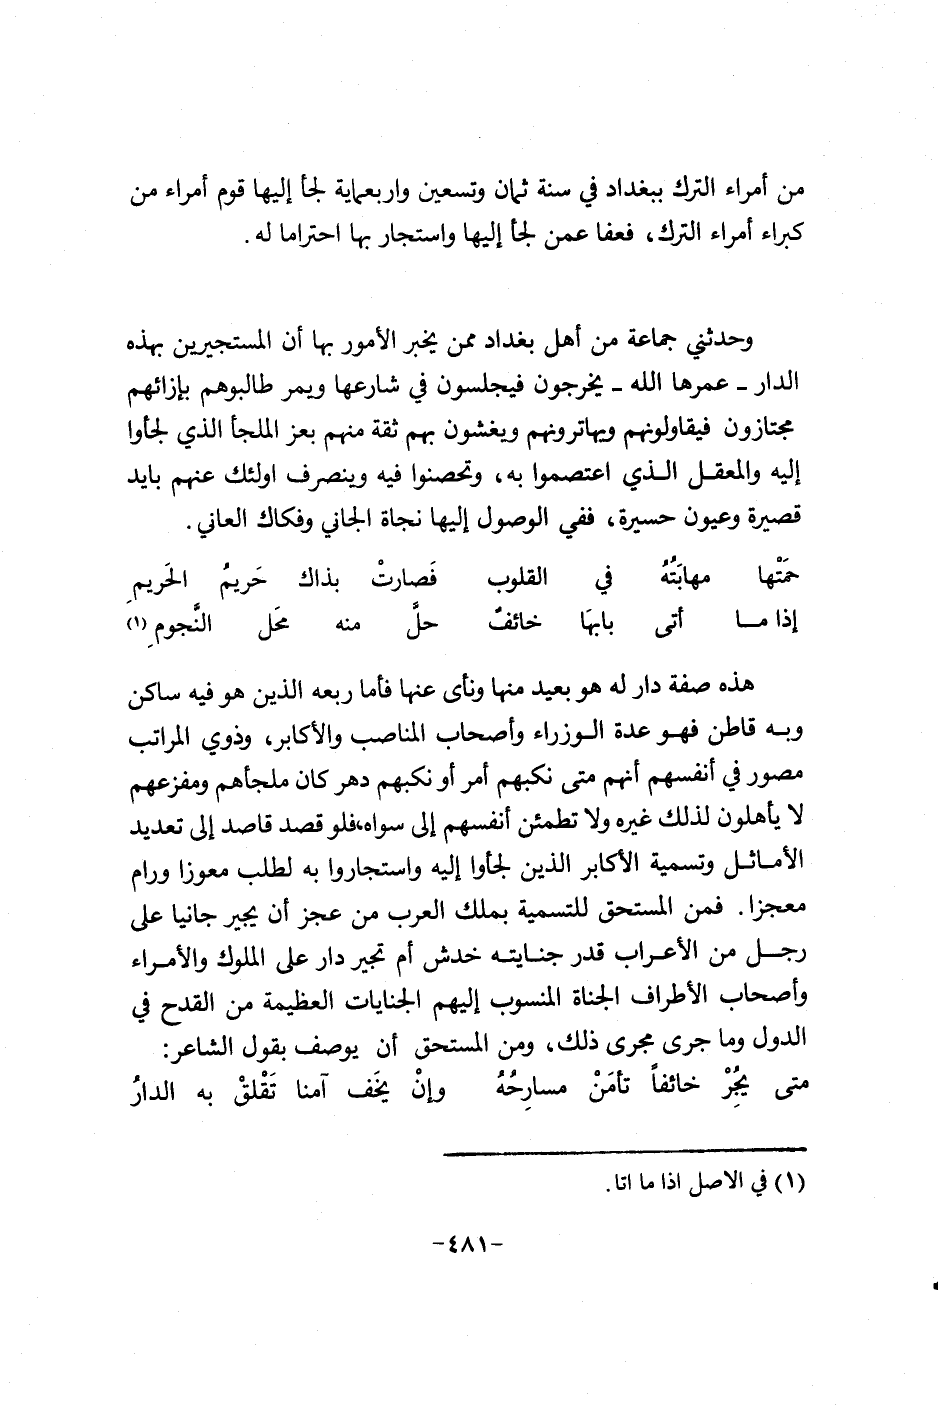 من أمراء الترك ببغداد في سنة ثمان وتسعين واربعماية لجأ إليها قوم أمراء من
كبراء أمراء الترك، فعفا عمن لجأ إليها واستجار بها احتراما له.
وحدثني جماعة من أهل بغداد ممن يخبر الأمور بها أن المستجيرين بهذه
الدار ـ عمرها الله ـ يخرجون فيجلسون في شارعها ويمر طالبوهم بإزائهم
مجتازون فيقاولونهم ويهاترونهم ويغشون بهم ثقة منهم بعز الملجأ الذي لجأوا
إليه والمعقل الذي اعتصموا به، وتحصنوا فيه وينصرف اولئك عنهم بايد
قصيرة وعيون حسيرة، ففي الوصول إليها نجاة الجاني وفكاك العاني.
حمَتْها مهابَتُهُ في القلوب فَصارتْ بذاك حَريمُ الحَريمِ
إذا ما أتى بابهَا خائفٌ حلَّ منه محَل النَّجومِ (١)
هذه صفة دار له هو بعيد منها ونأى عنها فأما ربعه الذين هو فيه ساكن
وبه قاطن فهو عدة الوزراء وأصحاب المناصب والأكابر، وذوي المراتب
مصور في أنفسهم أنهم متى نكبهم أمر أو نكبهم دهر كان ملجأهم ومفزعهم
لا يأهلون لذلك غيره ولا تطمئن أنفسهم إلى سواه،فلو قصد قاصد إلى تعديد
الأماثل وتسمية الأكابر الذين لجأوا إليه واستجاروا به لطلب معوزا ورام
معجزا. فمن المستحق للتسمية بملك العرب من عجز أن يجير جانيا على
رجل من الأعراب قدر جنايته خدش أم تجير دار على الملوك والأمراء
وأصحاب الأطراف الجناة المنسوب إليهم الجنايات العظيمة من القدح في
الدول وما جرى مجرى ذلك، ومن المستحق أن يوصف بقول الشاعر:
متى يجُرِْ خائفاً تأمَنْ مسارِحُهُ وإنْ يخَف آمنا تَقْلقْ به الدارُ
(١) في الاصل اذا ما اتا.
-٤٨١-